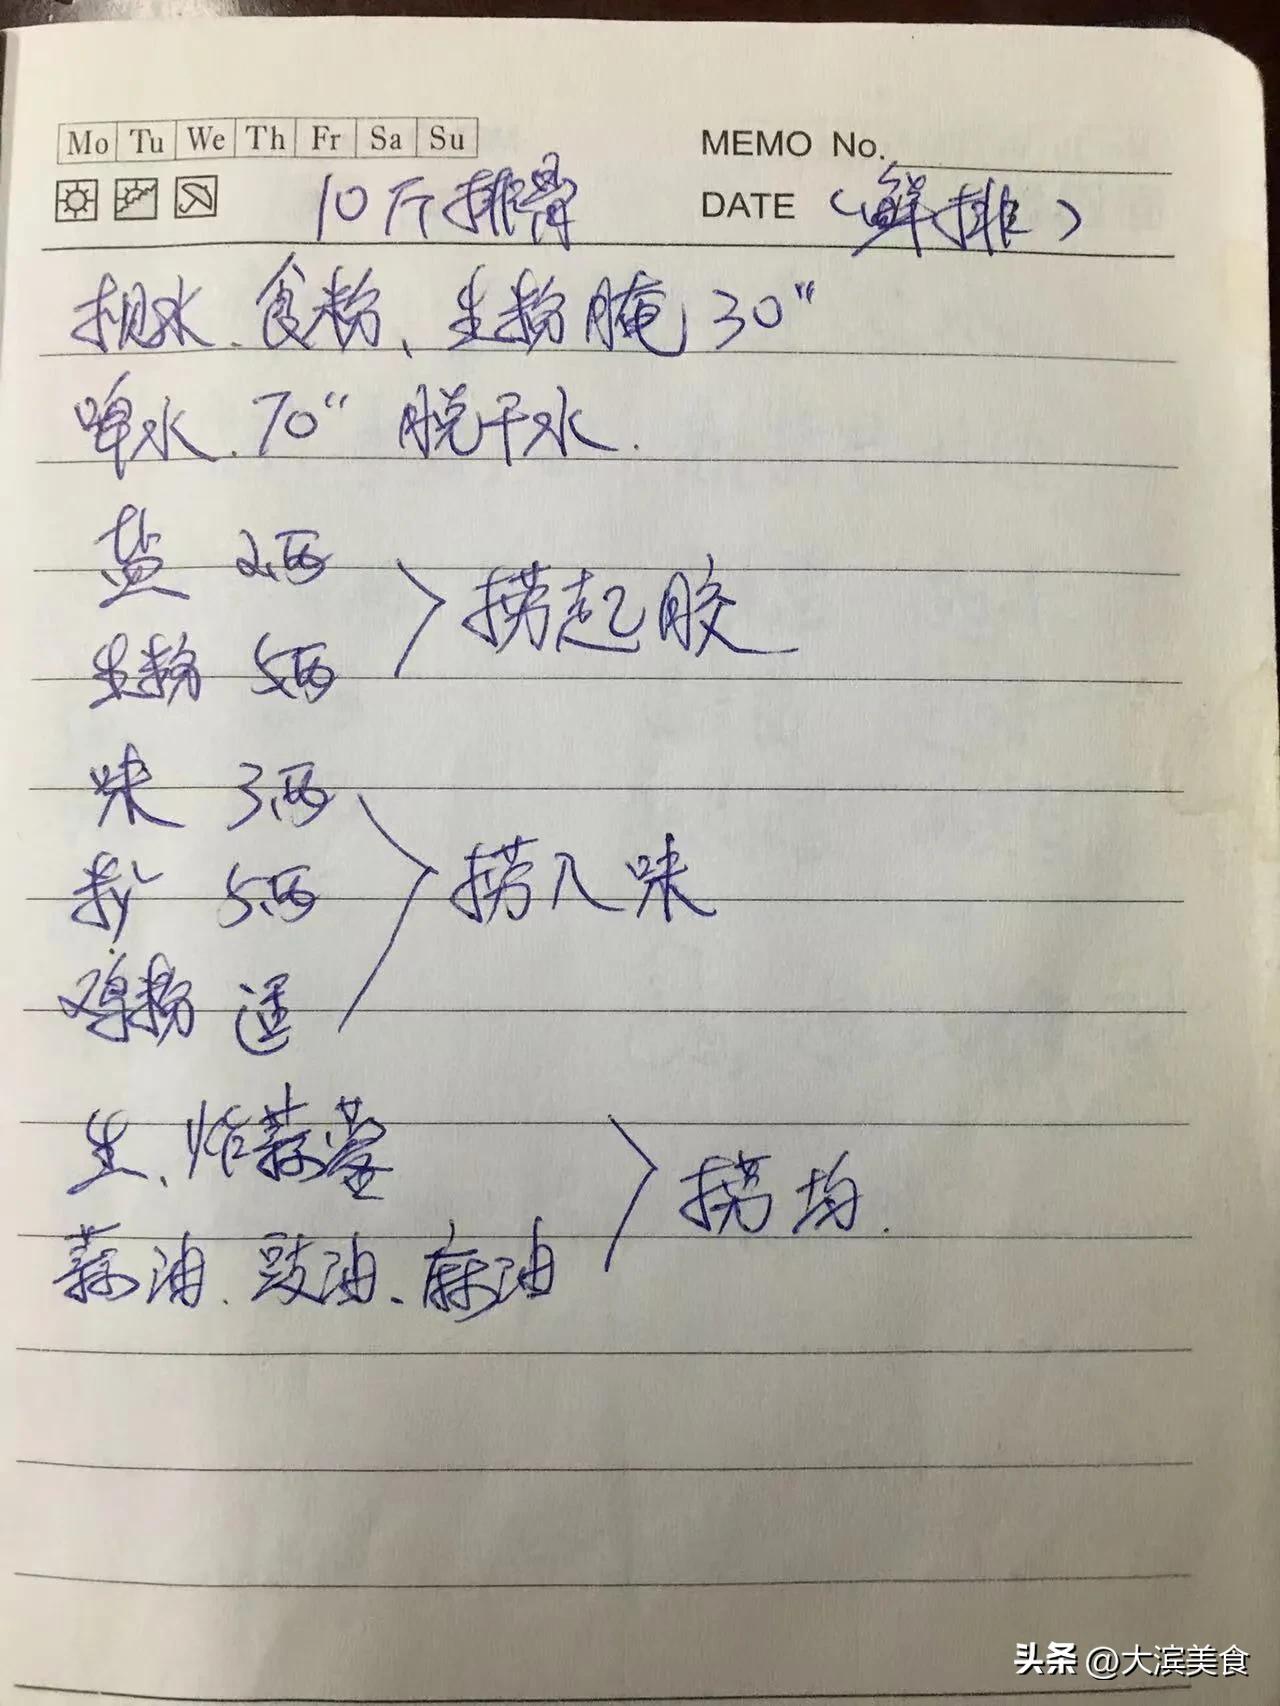 Mo Tu We Th Fr Sa Su
MEMO No.
10斤排骨
DATE (鲜排)
枧水、食粉、生粉腌30"
啤水、70" 脱干水.
盐 2两
生粉 5两
捞起胶
味 3两
5两
捞入味
鸡粉 适
生、炸蒜蓉
捞均.
蒜油、豉油、麻油
头条 @大滨美食